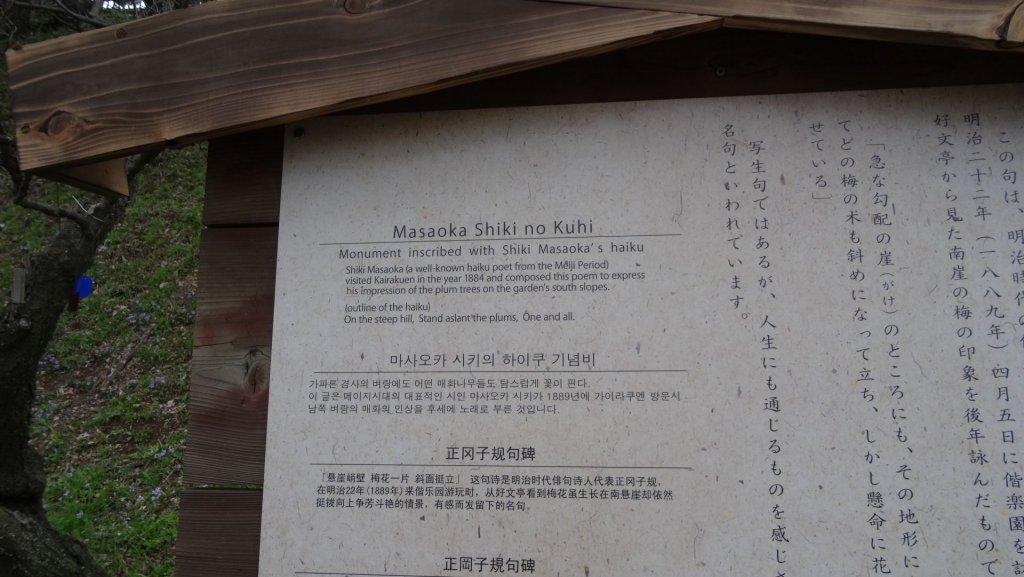 Masaoka Shiki no Kuhi
Monument inscribed with Shiki Masaoka's haiku
Shiki Masaoka (a well-known haiku poet from the Meiji Period)
visited Kairakuen in the year 1884 and composed this poem to express
his impression of the plum trees on the garden's south slopes.
(outline of the haiku)
On the steep hill, Stand aslant the plums, One and all.
마사오카 시키의 하이쿠 기념비
가파른 경사의 벼랑에도 어떤 매화나무들도 탐스럽게 꽃이 핀다.
이 글은 메이지시대의 대표적인 시인 마사오카 시키가 1889년에 가이라쿠엔 방문서
남쪽 벼랑의 매화의 인상을 후세에 노래로 부른 것입니다.
正冈子规句碑
「悬崖峭壁 梅花一片 斜面挺立」 这句诗是明治时代俳句诗人代表正冈子规，
在明治22年(1889年)来偕乐园游玩时，从好文亭看到梅花虽生长在南悬崖却依然
挺拔向上争芳斗艳的情景，有感而发留下的名句。
正岡子規句碑
この句は、明治時代の
明治二十二年（一八八九年）四月五日に偕楽園を訪
好文亭から見た南崖の梅の印象を後年詠んだもので
「急な勾配の崖（がけ）のところにも、その地形に
てどの梅の木も斜めになって立ち、しかし懸命に花
せている」
写生句ではあるが、人生にも通じるものを感じさ
名句といわれています。